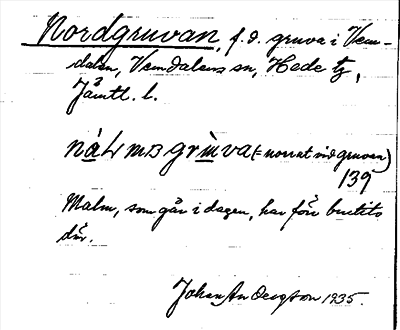 Nordgruvan, f.d. gruva i Vem-
dalen, Vemdalens sn, Hede tg,
Jämtl. l.
gruva (= norrut vid gruvan)
139
Malm, som går i dagen, har förr brutits
där.
Johan Anderson 1935.